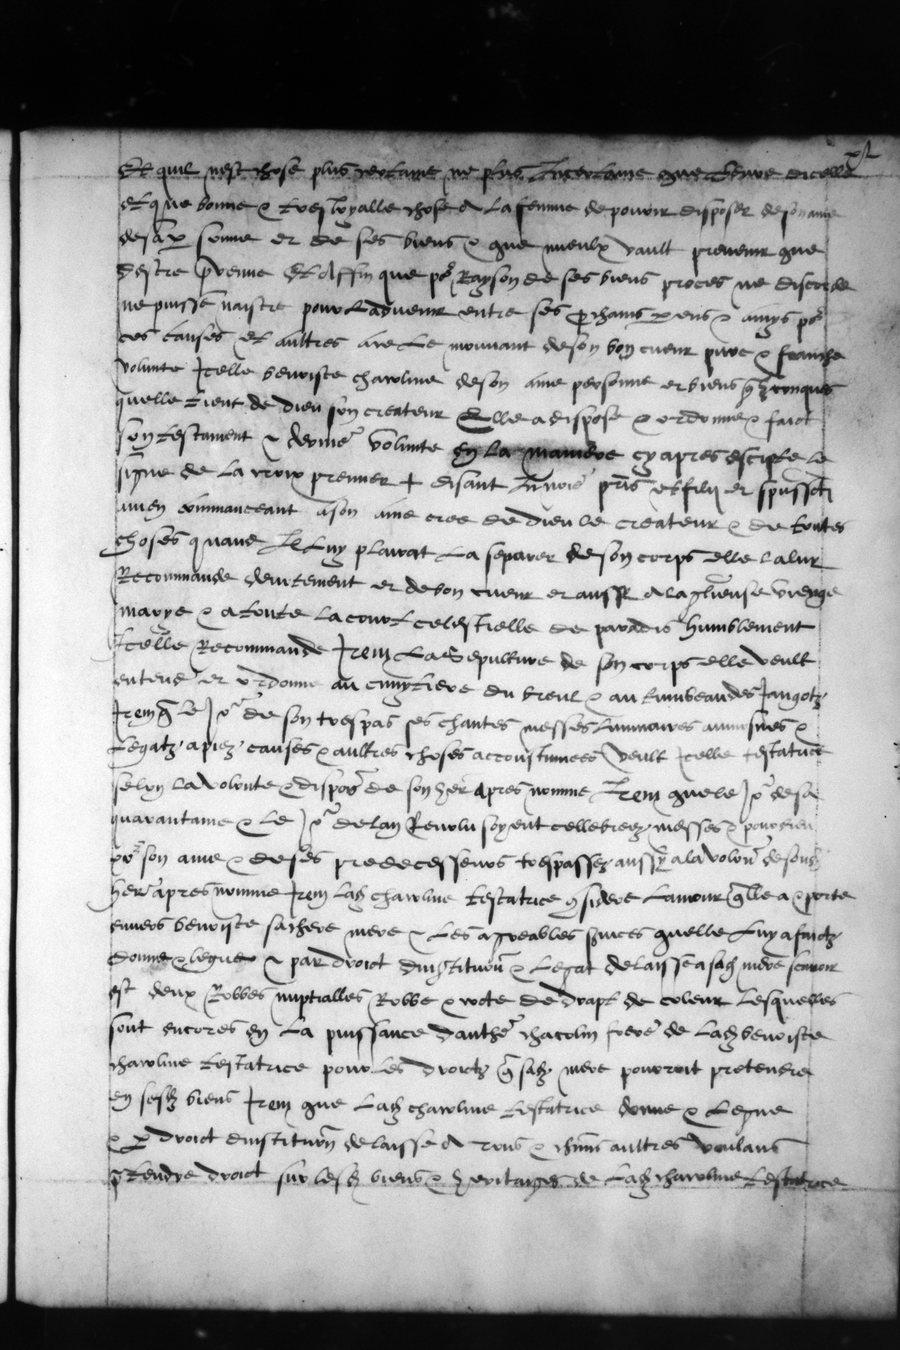 Et quil nest chose plus certaine ne plus Incertaine que lheure dicelle
et que bonne & tresloyalle chose a la femme de povoir disposer de son ame
de sa personne et de ses biens & que mieulx vault prevenir que
destre prvenue Et Affin que pour Rayson de ses biens proces ne discorde
ne puisse naistre pour Ladvenir entre ses prochains parens & amys pour
ces causes et aultres a ce Le mouvant de son bon cueur pure & franche
volunte Icelle benoiste charoline de son ame personne et biens quelconques
quelle tient de dieu son createur Elle a dispose & ordonne & faict
son testament & derniere volunte En La maniere cy apres escripte Le
signe de La croix premier + disant In noie pris et filii et spusscti
amen commanceant a son ame cree de dieu Le createur & de toutes
choses quant Il Luy plairat La separer de son corps elle laluy
Recommande devotement et de bon cueur et aussy a La glieuse vierge
marye & a toute La court celestielle de paradis humblement
Icelle Recommande Item La Sepulture de son corps elle veult
entend et ordonne au cimytiere du breul & au tumbeau des Jangotz
Item que Le Jour de son trespas ses chantes messes Luminaires aumosnes &
Legatz a piez causes & aultres choses accoustumees veult Icelle testatrice
selon La volonte & dispoon de son her apres nomme Item que le Jour de sa
quarantaine & Le Jour de lan Revolu soyent cellebreez messes &
pour son ame & de ses predecesseurs trespassez aussy a la volunte de sond
her apres nomme Item lad charoline testatrice considere Lamour quelle a & porte
envers benoiste sa chere mere & Les agreables services quelle Luy a faictz
donne & legue & par droict dinstitution & Legat delaisse a sad mere scavoir
est deux Robbes nuptialles Robbe & cote de drapt de coleur Lesquelles
sont encores en La puissance danthe charolin frere de Lad benoiste
charoline testatrice pour Les droictz que sad mere pourroit pretendre
en sesd biens Item que Lad charoline testatrice donne & Legue
& par droict dinstitution delaisse a tous & chuns aultres voulans
prtendre droict sur lesd biens & heritaiges de Lad charoline testatrice